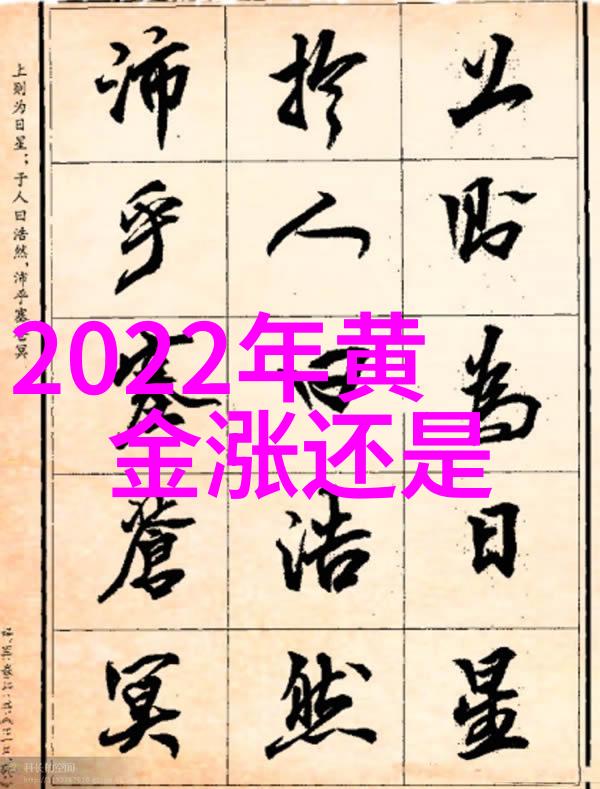 上則為日星
於人曰浩然
沛乎塞蒼冥
上则为日星；于人曰浩然，沛乎塞苍冥
2022年黄
金涨还是
科长的空间